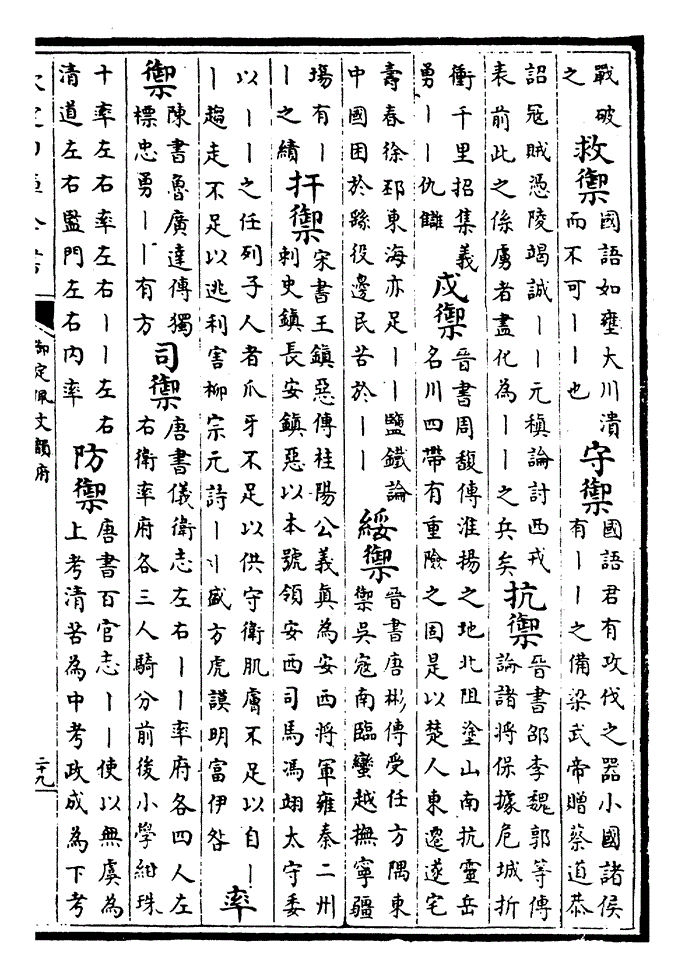 戰破之救禦國語如壅大川潰而不可丨丨也守禦國語君有攻伐之器小國諸侯有丨丨之備梁武帝贈蔡道恭
詔寇賊憑陵竭誠丨丨元稹論討西戎表前此之係虜者盡化為丨丨之兵矣抗禦晉書邵李魏郭等傳論諸將保據危城折
衝千里招集義勇丨丨仇讎戍禦晉書周馥傳淮揚之地北阻塗山南抗靈岳名川四帶有重險之固是以楚人東遷遂宅
壽春徐邳東海亦足丨丨鹽鐵論中國困於繇役邊民苦於丨丨綏禦晉書唐彬傳受任方隅東禦吳寇南臨蠻越撫寧疆
塲有丨丨之績扞禦宋書王鎮惡傳桂陽公義真為安西將軍雍秦二州刺史鎮長安鎮惡以本號領安西司馬馮翊太守委
以丨丨之任列子人者爪牙不足以供守衛肌膚不足以自丨丨趨走不足以逃利害柳宗元詩丨丨盛方虎謨明富伊咎率
禦陳書魯廣達傳獨標忠勇丨丨有方司禦唐書儀衛志左右丨丨率府各四人左右衛率府各三人騎分前後小學紺珠
十率左右率左右丨丨左右清道左右監門左右內率防禦唐書百官志丨丨使以無虞為上考清苦為中考政成為下考
御定佩文韻府